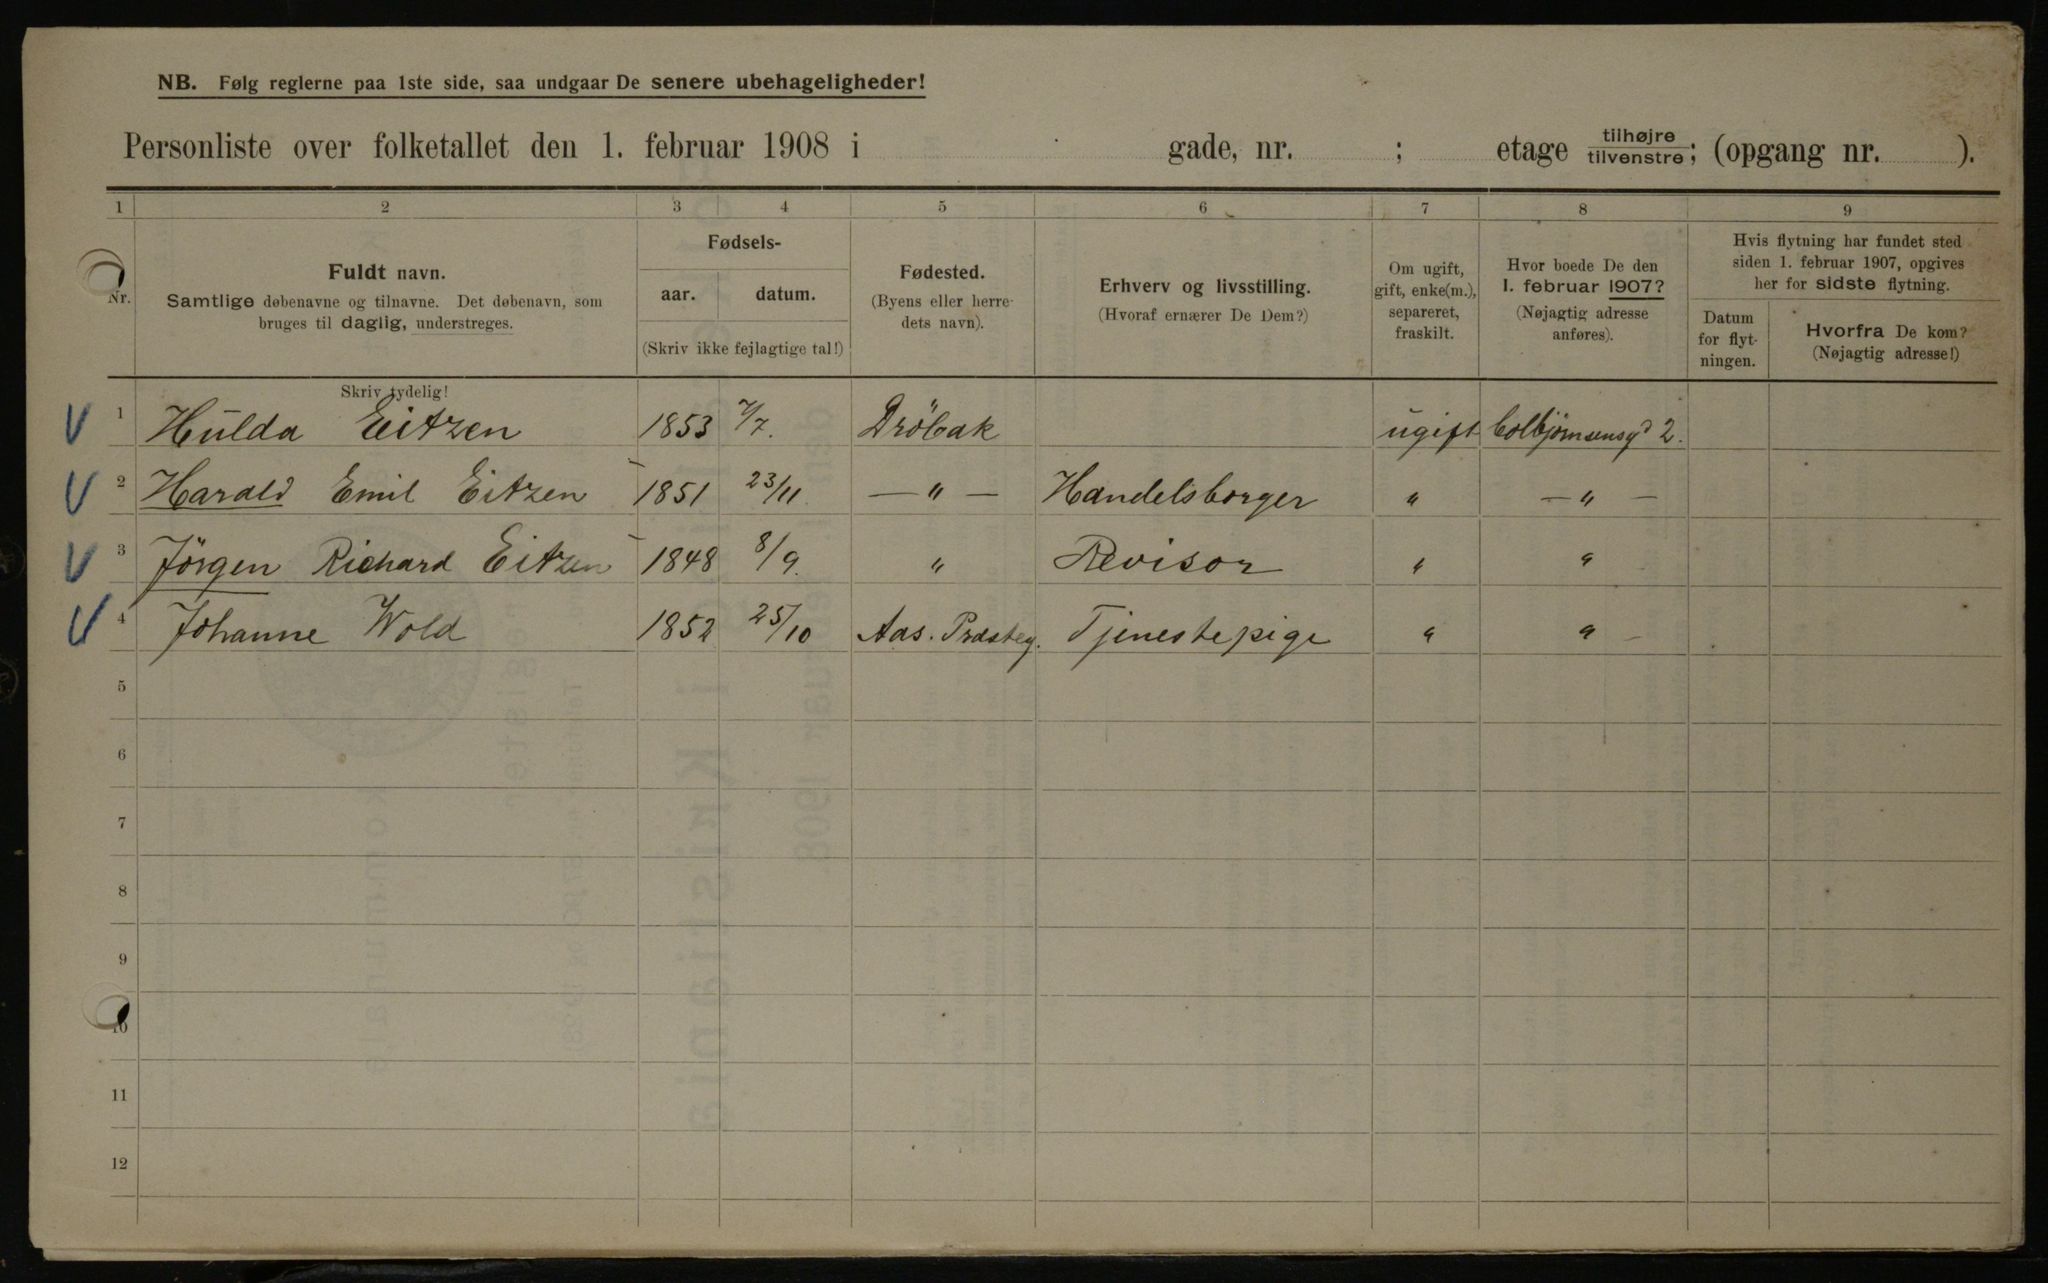 NB. Følg reglerne paa 1ste side, saa undgaar De senere ubehageligheder!
Personliste over folketallet den 1. februar 1908 i gade, nr. ; etage tilhøjre/tilvenstre; (opgang nr. ).
1 2 3 4 5 6 7 8 9
Nr. Fuldt navn. Samtlige døbenavne og tilnavne. Det døbenavn, som bruges til daglig, understreges.
Fødsels- aar. datum. (Skriv ikke fejlagtige tal!)
Fødested. (Byens eller herredets navn).
Erhverv og livsstilling. (Hvoraf ernærer De Dem?)
Om ugift, gift, enke(m.), separeret, fraskilt.
Hvor boede De den 1. februar 1907? (Nøjagtig adresse anføres).
Hvis flytning har fundet sted siden 1. februar 1907, opgives her for sidste flytning.
Datum for flytningen. Hvorfra De kom? (Nøjagtig adresse!)
Skriv tydelig!
1 Hulda Eitzen 1853 7/7. Dröbak ugift Colbjörnsensgd 2.
2 Harald Emil Eitzen 1851 23/11. — " — Handelsborger " — " —
3 Jörgen Richard Eitzen 1848 8/9. " Revisor " "
4 Johanne Wold 1852 25/10 Aas. Prästeg. Tjenestepige " " –
5
6
7
8
9
10
11
12